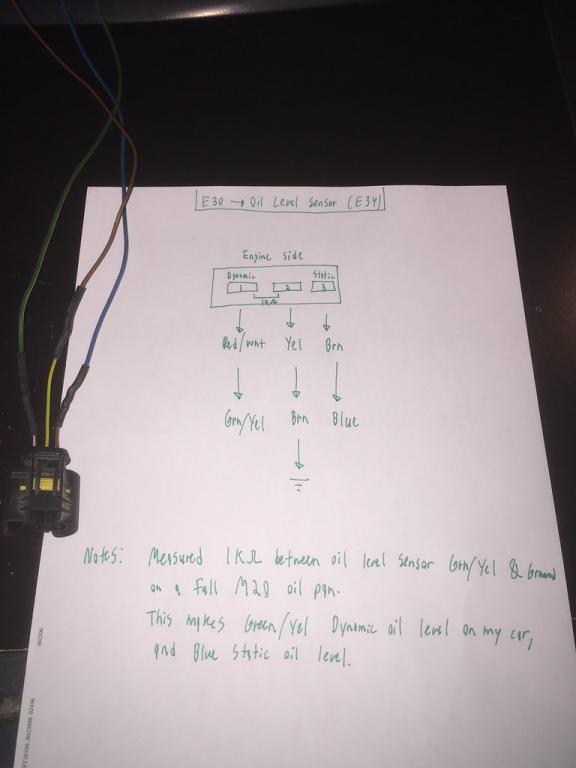 E30 → Oil Level Sensor (E34)
Engine side
Dynamic Static
1 2 3
1KΩ
Red/Wht Yel Brn
Grn/Yel Brn Blue
Notes: Measured 1KΩ between oil level sensor Grn/Yel & Ground
on a full M20 oil pan.
This makes Green/Yel Dynamic oil level on my car,
and Blue Static oil level.